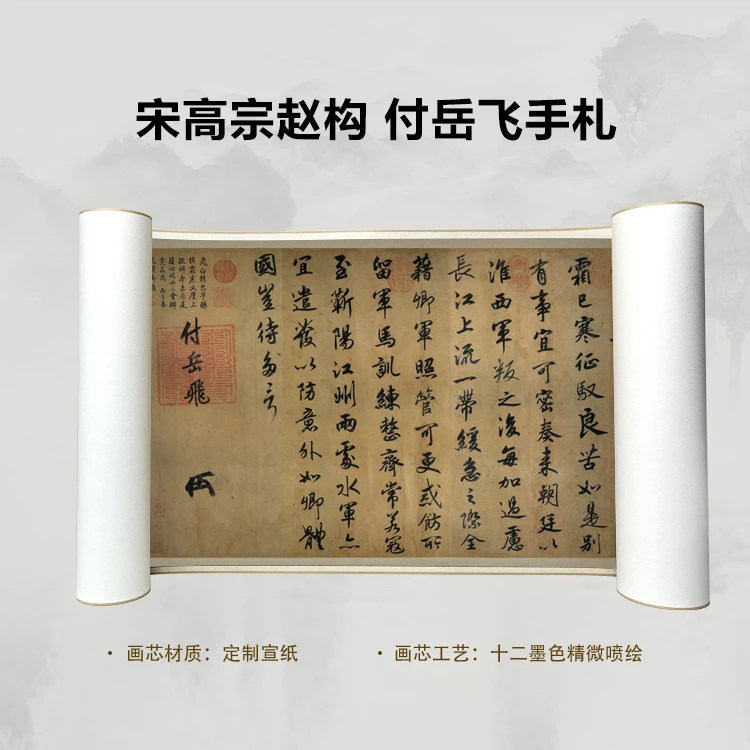 宋高宗赵构 付岳飞手札
霜已寒征馭良苦如是别
有事宜可密奏来朝廷以
淮西軍叛之後每加過慮
長江上流一帶緩急之際全
藉卿軍照管可更戒飭所
留軍馬訓練整齊常若寇
至蘄陽江州兩處水軍亦
宜遣發以防意外如卿體
國豈待多言
付岳飛
画芯材质：定制宣纸
画芯工艺：十二墨色精微喷绘